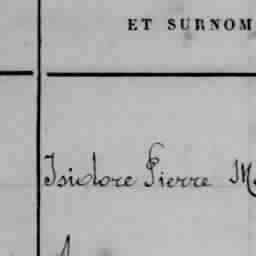 ET SURNOM
Isidore Pierre M